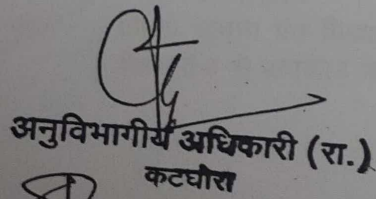 अनुविभागीय अधिकारी (रा.)
कटघोरा